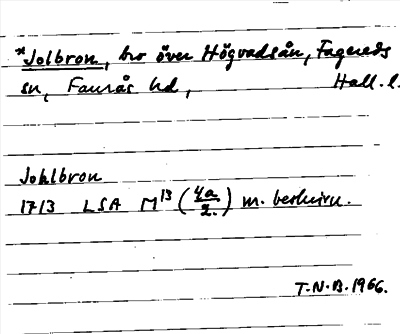 *Jolbron, bro över Högvadsån, Fagereds
sn, Faurås hd, Hall. l.
Johlbron
1713 LSA M13 (4a/2.) m. beskrivn.
T.N.B. 1966.